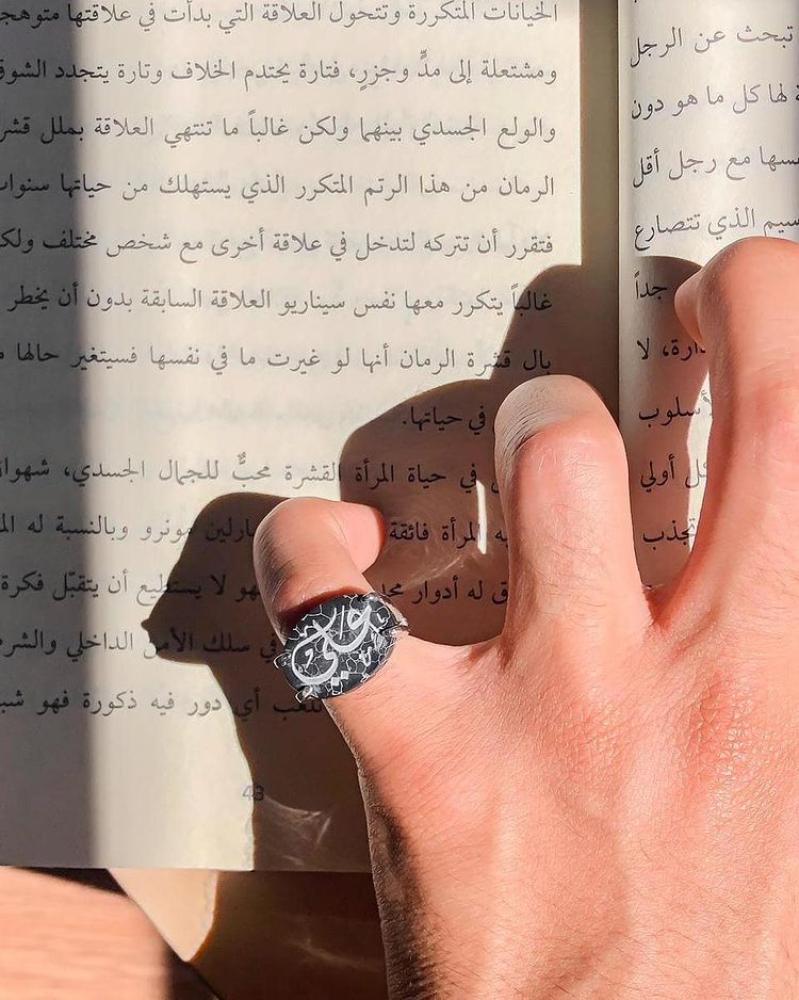 تبحث عن الرجل
لها كل ما هو دون
مع رجل أقل
الذي تتصارع
جداً
لا
أولي
تجذب
الخيانات المتكررة وتتحول العلاقة التي بدأت في علاقتها
ومشتعلة إلى مدٍّ وجزرٍ، فتارة يحتدم الخلاف وتارة يتجدد الشوق
والولع الجسدي بينهما ولكن غالباً ما تنتهي العلاقة بملل
الرمان من هذا الرتم المتكرر الذي يستهلك من حياتها
فتقرر أن تتركه لتدخل في علاقة أخرى مع شخص مختلف
غالباً يتكرر معها نفس سيناريو العلاقة السابقة بدون أن يخطر
بال قشرة الرمان أنها لو غيرت ما في نفسها فسيتغير حالها
في حياتها.
في حياة المرأة القشرة محبٌّ للجمال الجسدي،
المرأة فائقة مونرو وبالنسبة له
له أدوار فهو لا يستطيع أن يتقبّل فكرة
في سلك الأمن الداخلي
للعب أي دور فيه ذكورة فهو
43
علي